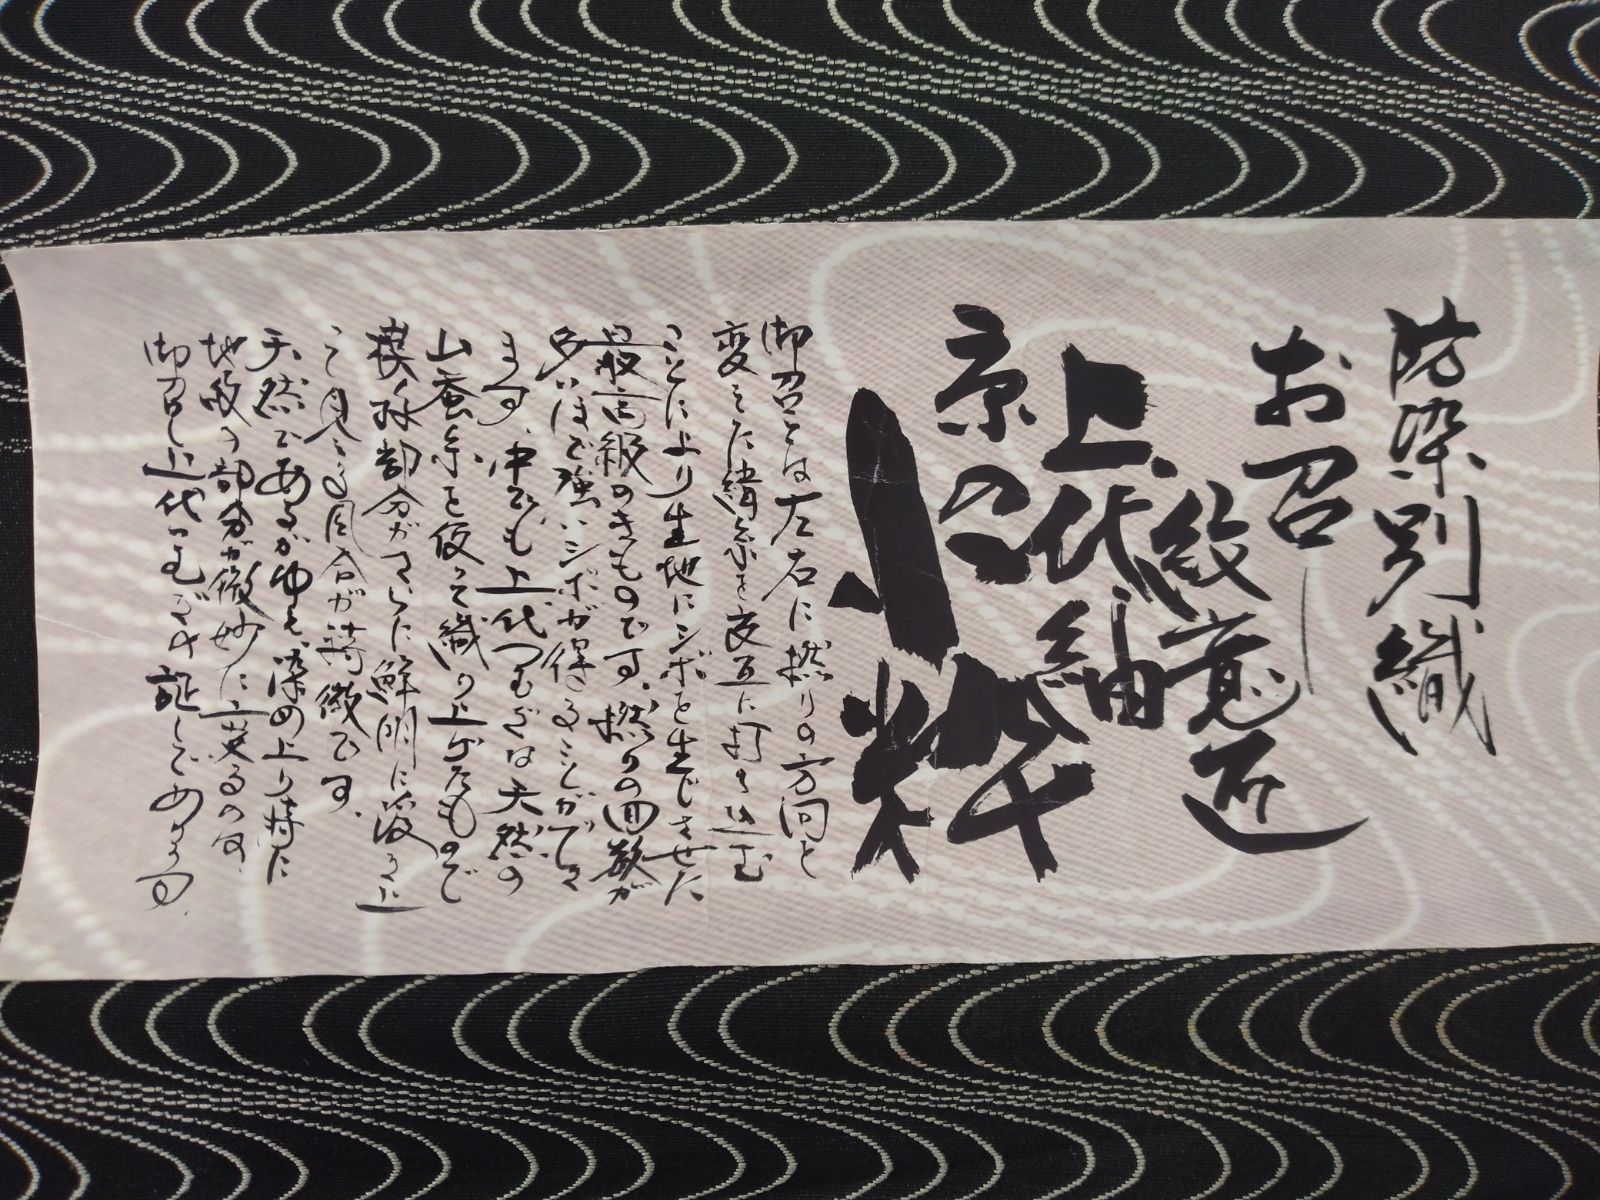 防染別織
お召
紋意匠
上代紬
京の
小粋
御召とは左右に撚りの方向を
変えた緯糸を交互に打ち込む
ことにより生地にシボを生じさせた
最高級のきものです。撚りの回数が
多いほど強いシボが得ることができ
ます。中でも上代つむぎは天然の
山蚕糸を使って織り上げたもので
模様部分がさらに鮮明に浮き上っ
て見える風合が特徴です。
天然であるがゆえ、染め上り特に
地紋の部分が微妙に変るのは、
御召し上代つむぎの証しであります。